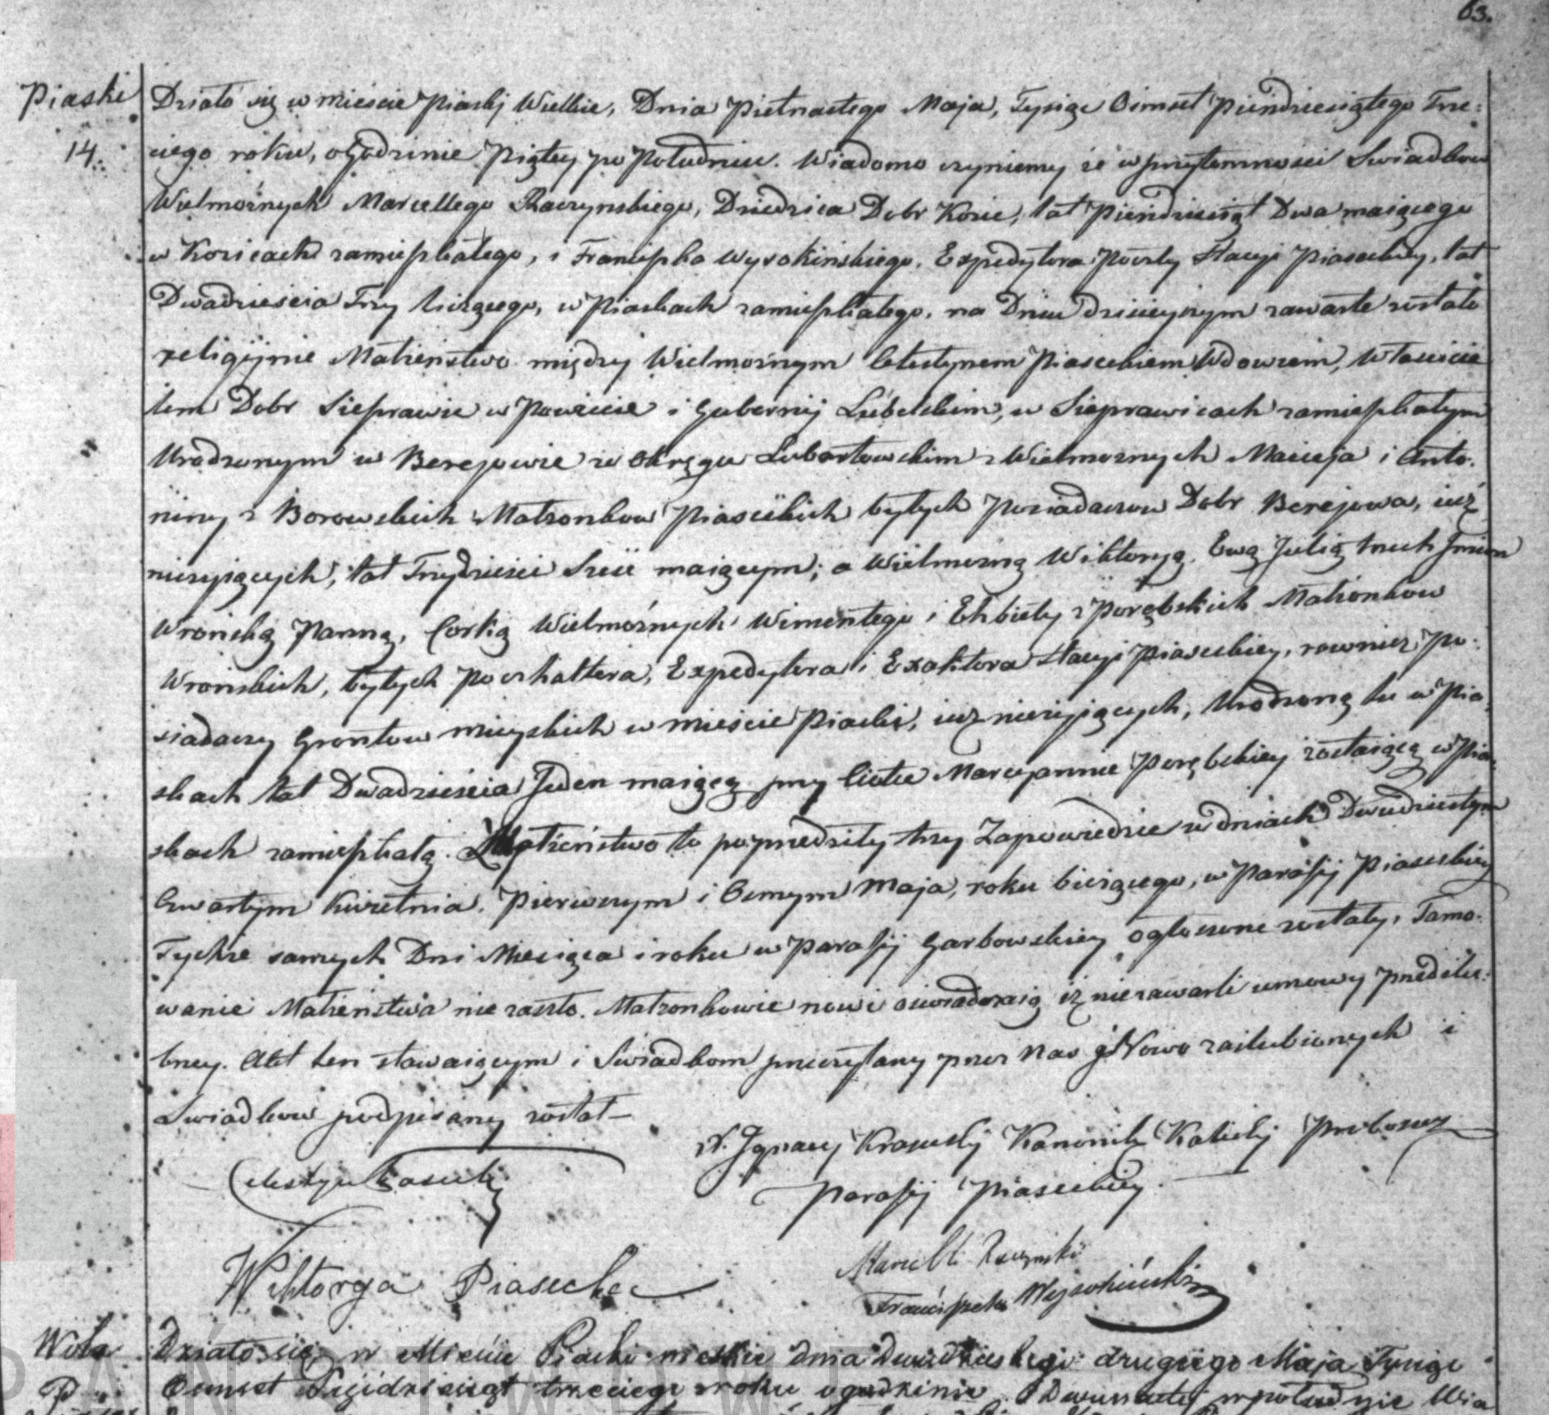 63.
Piaski
14.
Działo się w mieście Piaski Wielkie, Dnia Piętnastego Maja, Tysiąc Ośmset Piendziesiątego Trze-
ciego roku, o godzinie Piątey po Południu. Wiadomo czyniemy że w przytomności Swiadkow
Wielmożnych Marcellego Raczynskiego, Dziedzica Dobr Kozic, lat Piendziesiąt Dwa maiącego
w Kozicach zamieszkałego, i Franciszka Wysokińskiego, Expedytora Poczty Stacyi Piaseckiey, lat
Dwadzieścia Trzy liczącego, w Piaskach zamieszkałego, na Dniu dzisieyszym zawarte zostało
religijnie Małżeństwo między Wielmożnym Celestynem Piaseckiem Wdowcem, właścicie
lem Dobr Sieprawic w Powiecie i Gubernij Lubelskim, w Sieprawicach zamieszkałym
Urodzonym w Berejowie w Okręgu Lubartowskim z Wielmożnych Macieja i Anto-
niny z Borowskich Małżonkow Piaseckich byłych Posiadaczow Dobr Berejowa, iuż
nieżyiących, lat Trzydzieści Sześć maiącym; a Wielmożną Wiktoryą, Ewą Julią trzech Jmion
Wrońską Panną, Corką Wielmożnych Wincentego i Elżbiety z Porębskich Małżonkow
Wrońskich, byłych Poczhaltera, Expedytora i Exaktora Stacyi Piaseckiey, rownież Po-
siadaczy Grontow mieyskich w mieście Piaski, iuż nieżyiących, Urodzoną tu w Pia-
skach lat Dwadzieścia Jeden maiącą przy Ciotce Maryannie Porębskiey zostaiącą w Pia-
skach zamieszkałą. Małżeństwo to poprzedziły trzy Zapowiedzie w dniach Dwudziestym
Czwartym Kwietnia, Pierwszym i Osmym Maja, roku bieżącego, w Parafij Piaseckiey
Tychże samych Dni Miesiąca i roku w Parafij Garbowskiey ogłoszone zostały, Tamo-
wanie Małżeństwa nie zaszło. Małżonkowie nowi oświadczaią iż nie zawarli umowy przedślu-
bney. Akt ten stawaiącym i Swiadkom przeczytany przez Nas i Nowo zaślubionych i
Swiadkow podpisany został –
X. Ignacy Krasuski Kanonik Kaliski Proboszcz
Parafij Piaseckiey.
Celestyn Piasecki
Wiktorya Piasecka
Marcelli Raczynski
Franciszek Wysokiński
Wola
Działo się w Mieście Piaski dnia Dwudziestego drugiego Maja Tysiąc
Ośmset Pięidziesiąt trzeciego roku o godzinie Dwunastej w południe Wia